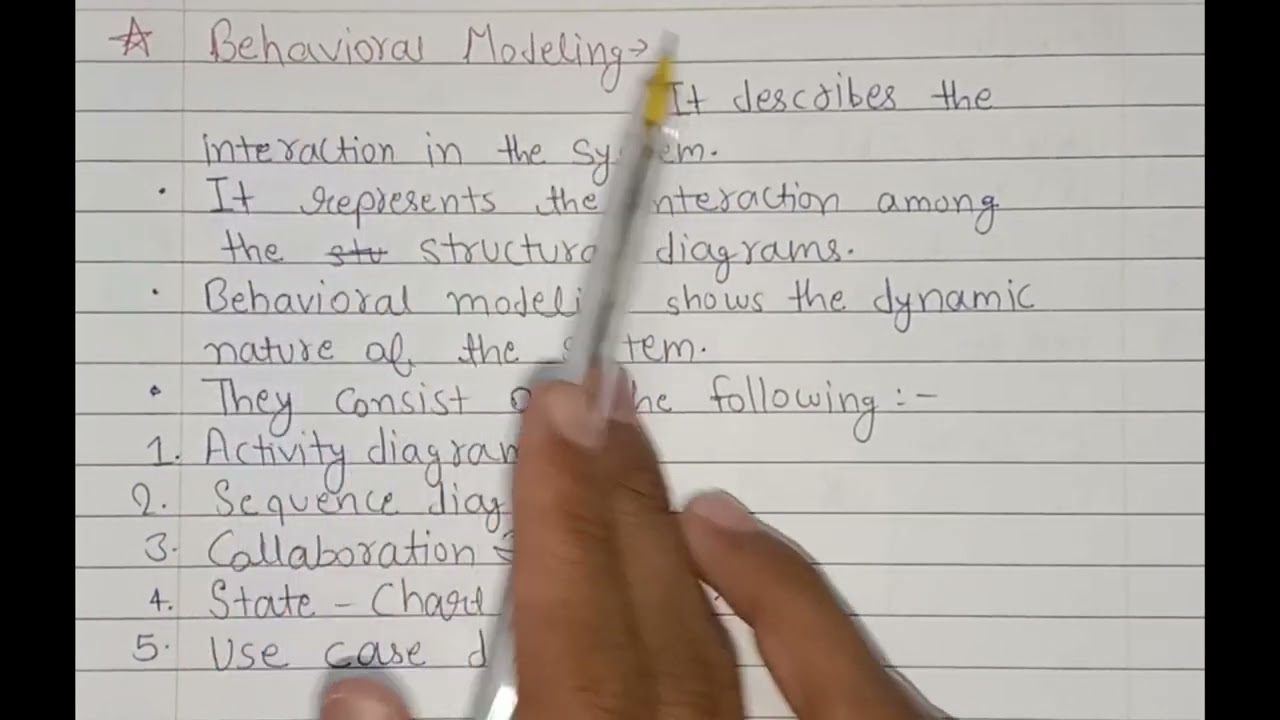 ☆ Behavioral Modeling →
It describes the
interaction in the system.
• It represents the interaction among
the stu structural diagrams.
• Behavioral modeling shows the dynamic
nature of the system.
• They consist of the following :-
1. Activity diagram
2. Sequence diag
3. Collaboration
4. State - Chart
5. Use case d